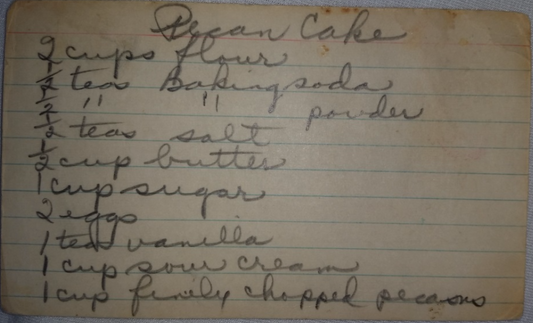 Pecan Cake
2 cups flour
1/2 teas Baking soda
1/2 " " powder
1/2 teas salt
1/2 cup butter
1 cup sugar
2 eggs
1 teas vanilla
1 cup sour cream
1 cup finely chopped pecans